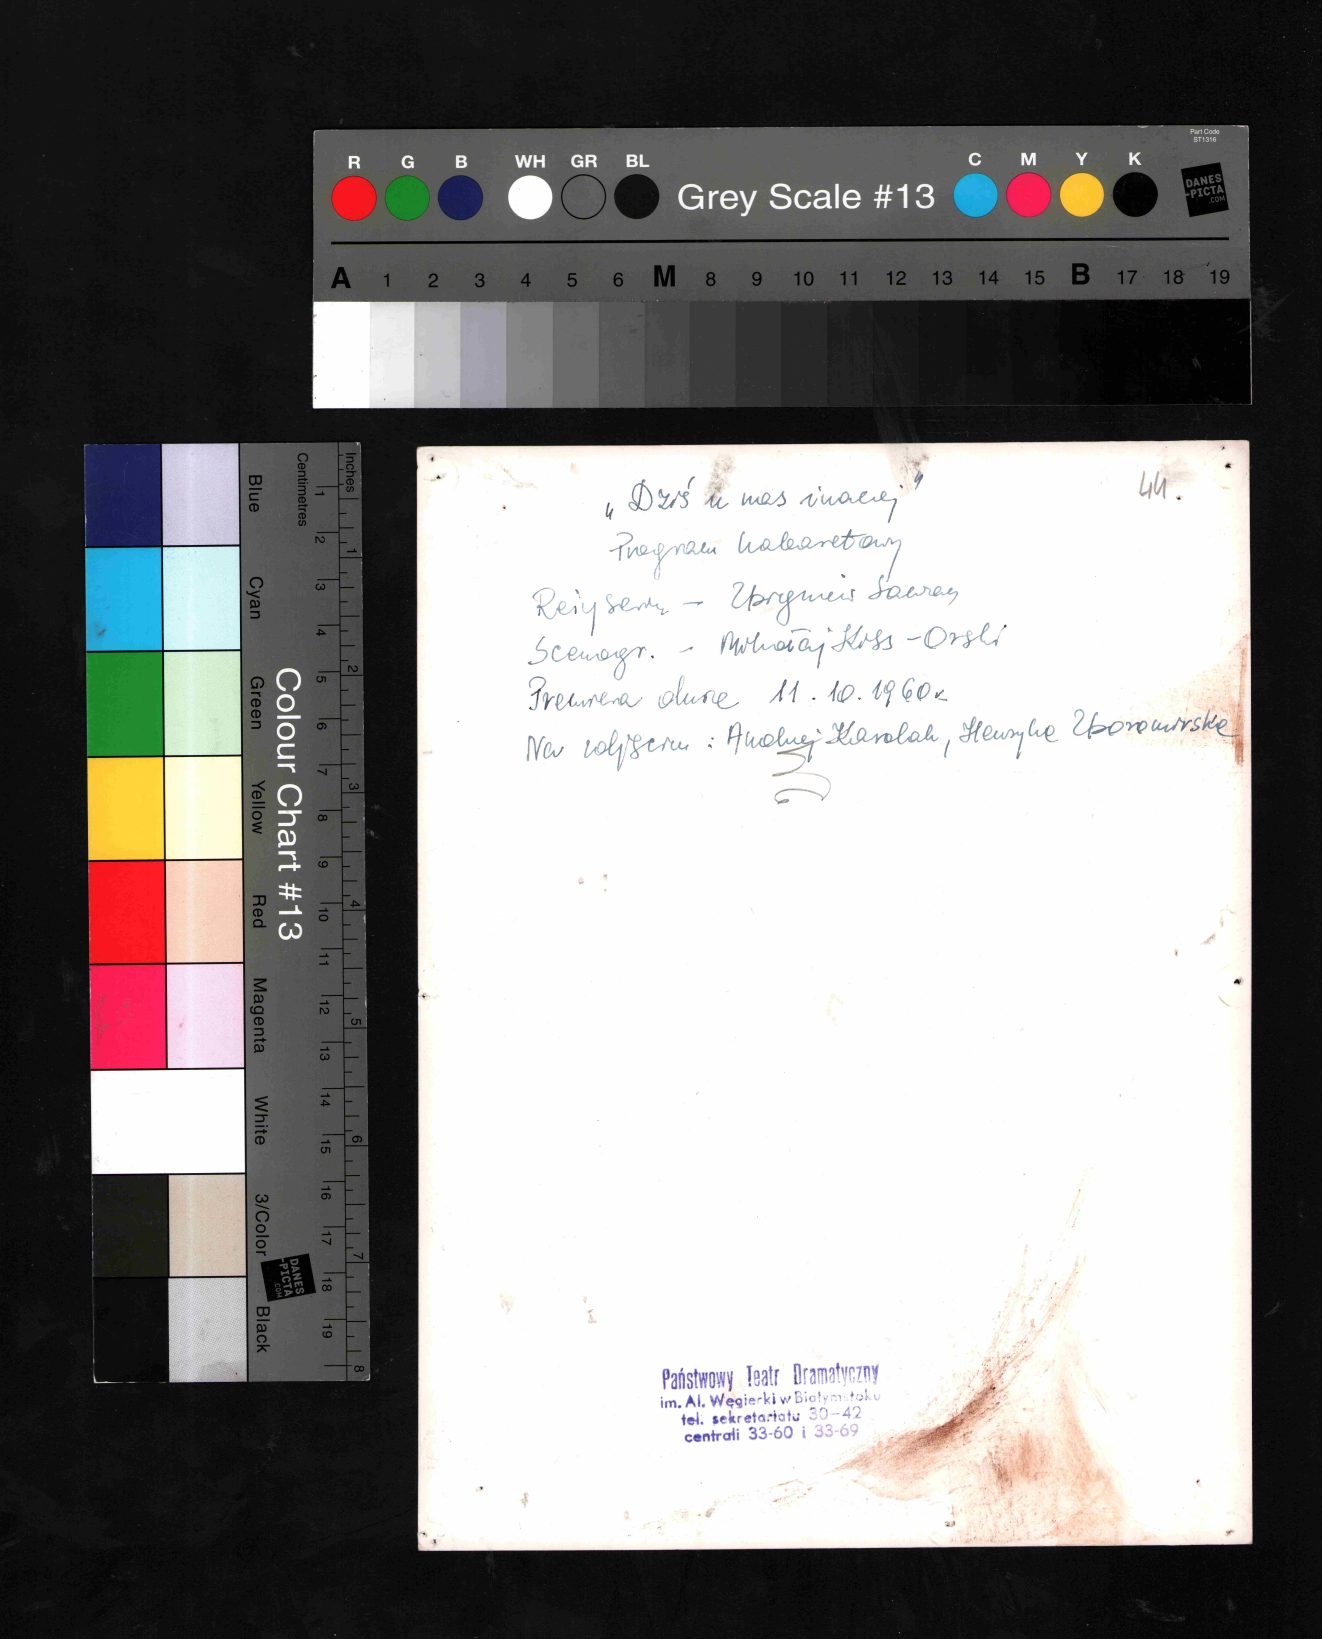 Part Code
ST1316
R G B WH GR BL Grey Scale #13 C M Y K
DANES
-PICTA
.COM
A 1 2 3 4 5 6 M 8 9 10 11 12 13 14 15 B 17 18 19
Colour Chart #13
Blue
Cyan
Green
Yellow
Red
Magenta
White
3/Color
Black
DANES
-PICTA
.COM
Centimetres
1 2 3 4 5 6 7 8 9 10 11 12 13 14 15 16 17 18 19
Inches
1 2 3 4 5 6 7 8
44.
„Dziś u nas inaczej"
Program kabaretowy
Reżyseria – Zbigniew
Scenogr. – Mikołaj Kiss-Orski
Premiera dnia 11.10.1960r
Na zdjęciu: Andrzej Karolak, Henryka Zboromirska
Państwowy Teatr Dramatyczny
im. Al. Węgierki w Białymstoku
tel. sekretariatu 30-42
centrali 33-60 i 33-69